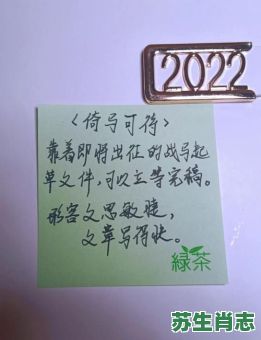 2022
<倚马可待>
靠着即将出征的战马起
草文件,可以立等完稿。
形容文思敏捷,
文章写得快。
緑茶
苏生肖志